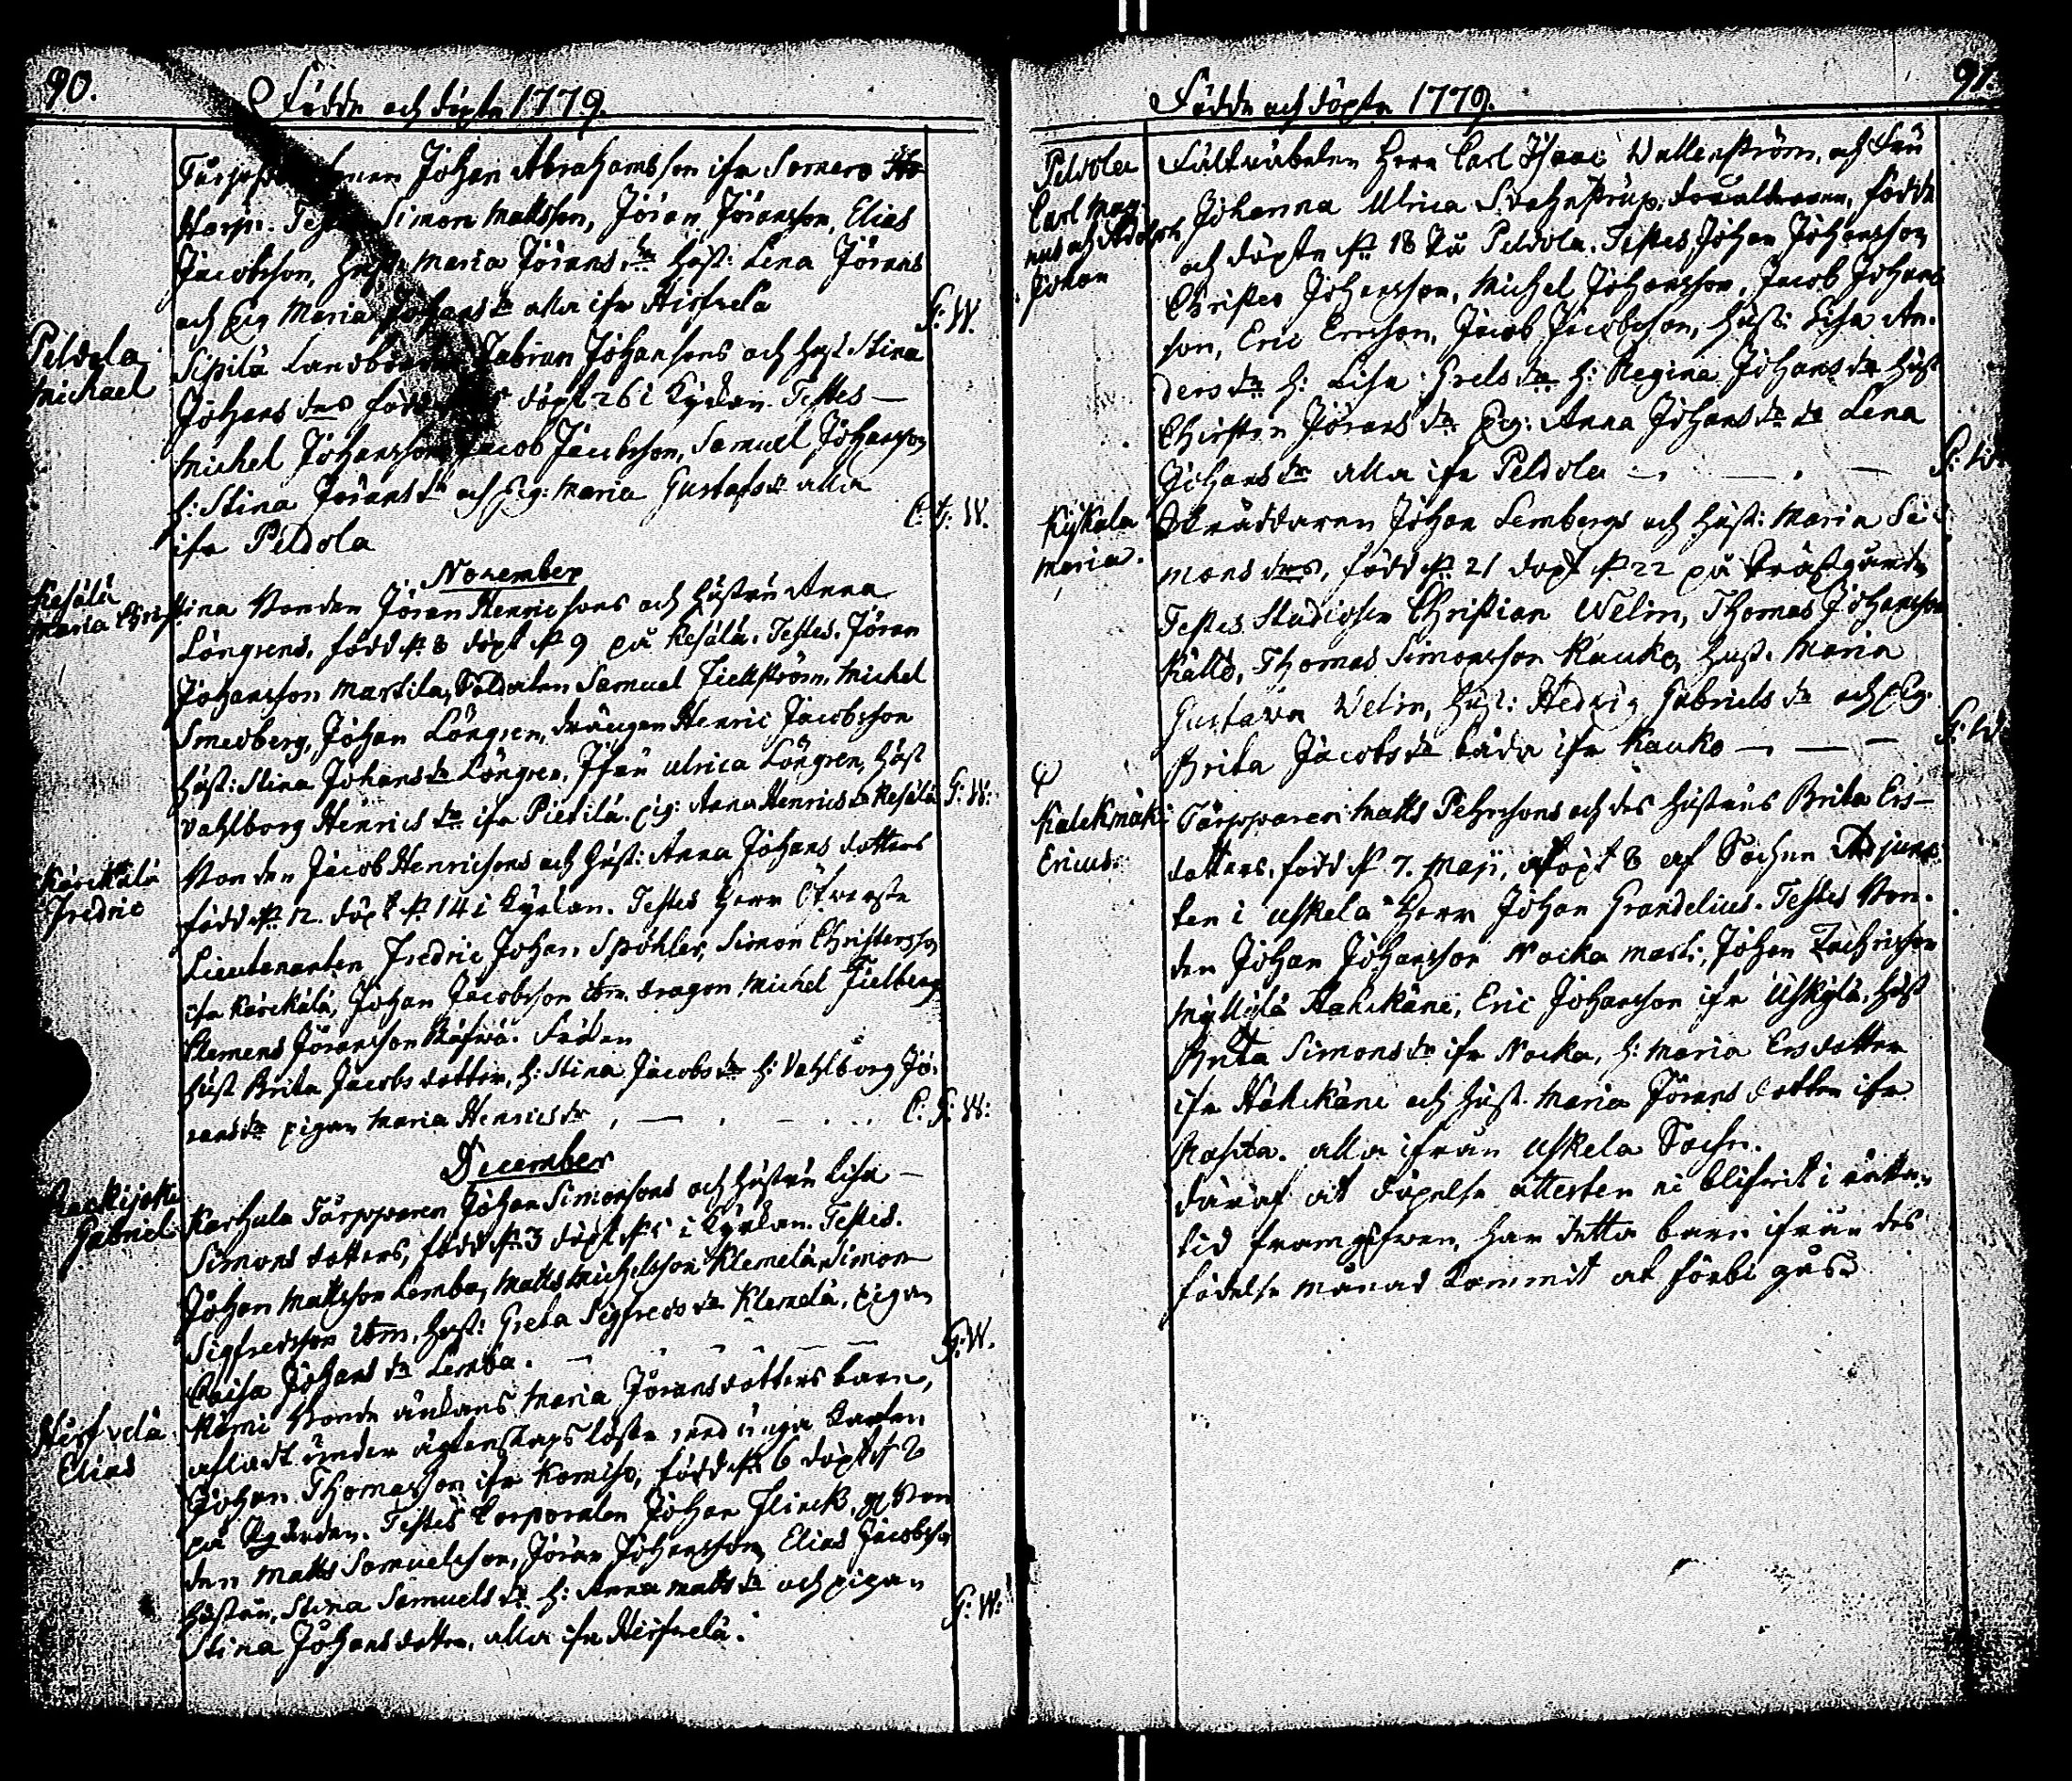 90.
Födde och döpte 1779.
Johan Abrahamsson ifr Somero
Harju. Simon Mattsson, Jöran Jöransson, Elias
Jacobsson, Hust: Maria Jöransdr Hust: Lena Jörans
och Pig Maria Johansdr alla ifr Hirfvela
G: W.
Peldola
Michael
Sipilä Landbonden Johansons och Hust Stina
Johansdrs född döpt 26 i Kyrkan. Testes —
Michel Johansson Jacob Jacobsson, Samuel Johansson
h: Stina Jöransdr och Pig: Maria Gustafsdr alla
ifr Peldola
C. G: W.
November
Kesälä
Maria Christina
Bonden Jöran Henricsons och Hustru Anna
Löngrens, född d. 8 döpt d. 9 på Kesälä. Testes. Jöran
Johansson Martila, Soldaten Samuel Fieltström, Michel
Smedberg, Johan Löngren, drängen Henric Jacobsson
Hust: Stina Johansdr Löngren, Jfru Ulrica Löngren, Hust
Vahlborg Henricsdr ifr Pietilä. Pig: Anna Henricsdr Kesälä
G: W:
Kärckälä
Fredric
Bonden Jacob Henricsons och Hust: Anna Johans dotters
född d. 12. döpt d. 14 i Kyrkan. Testes Herr Öfverste
Lieutenanten Fredric Johan Spöhler, Simon Christersson
ifr Kärckälä, Johan Jacobsson ibm. dragon Michel Fielberg
Clemens Jöransson
Hust Brita Jacobs dotter, h: Stina Jacobsdr h: Vahlborg Jö-
ransdr pigan Maria Henricsdr
C: G: W:
December
Gabriel
Karhula Torpparen Johan Simonsons och Hustru Lisa —
Simons dotters, född d. 3 döpt d. 5 i Kyrkan. Testes.
Johan Mattsson Lemba, Matts Michelsson Klemelä, Simon
Sigfredsson ibm, Hust: Greta Sigfredsdr Klemelä, pigan
Caisa Johansdr Lemba.
G: W.
Hirfvelä
Elias
Rämi Bonde änkans Maria Jöransdotters barn,
afladt under ägtenskaps löfte med unga Karlen
Johan Thomasson ifr Komiso, född d. 6 döpt d.
på Pgården. Testes Corporalen Johan Flinck, Bon
den Matts Samuelsson, Jöran Johansson, Elias Jacobsson
Hustru, Stina Samuelsdr h: Anna Mattsdr och pigan
Stina Johansdotter, alla ifr Hirfvelä.
G: W:
91.
Födde och döpte 1779.
Peldola
Carl Mag-
nus och Adolph
Johan
Fältväbelen Herr Carl Isaac Wallenström, och Fru
Johanna Ulrica födde
och döpte d. 18 på Peldola. Testes Johan Johansson
Christer Johansson, Michel Johansson, Jacob Johans
son, Eric Ericsson, Jacob Jacobsson, Hust: Lisa An-
dersdr h: Lisa Grelsdr h: Regina Johansdr Hust
Christin Jöransdr Pig: Anna Johansdr dr Lena
Johansdr alla ifr Peldola
G: W.
Kyskala
Maria.
Skräddaren Johan Lembergs och Hust: Maria Si-
mons drs, född d. 21 döpt d. 22 på Prästgården
Testes Studiosen Christian Welin, Thomas Johansson
Källd, Thomas Simonsson Kauko, Hust. Maria
Gustava Welin, Hust: Hedvig Gabriels dr och Pig.
Brita Jacobsdr båda ifr Kauko
G: W.
Kalckmäki
Ericus.
Torpparen Matts Pehrsons och des Hustrus Brita Ers-
dotters, född d. 7. Maji, döpt 8 af Sochne Adjunc
ten i Uskela Herr Johan Grandelius. Testes Bon-
den Johan Johansson Nocka Marti, Johan Zachrisson
Myllylä Hahckäne, Eric Johansson ifr Uskylä, Hust
Brita Simonsdr ifr Nocka, h: Maria Ersdotter
ifr Hahckäne och Hust. Maria Jörans dotter ifr
alla ifrån Uskela Sochn.
däraf at döpelse attesten ei blifvit i rättan
tid framgifven, har detta barn ifrån des
födelse månad kommit at förbi gås